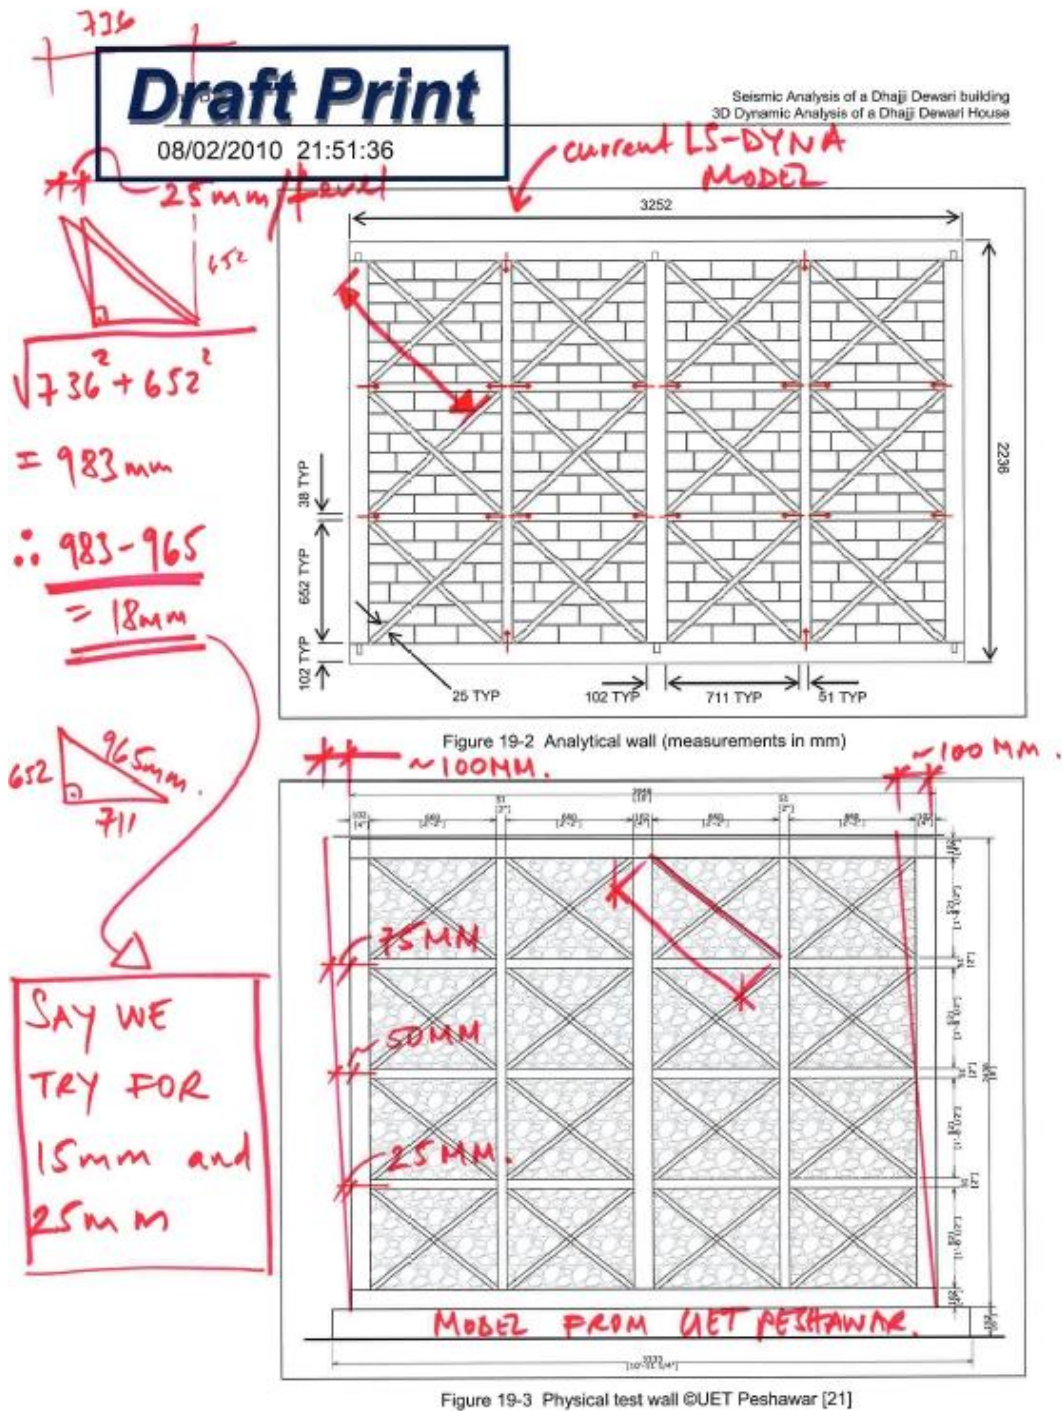 736
Draft Print
08/02/2010 21:51:36
Seismic Analysis of a Dhajji Dewari building
3D Dynamic Analysis of a Dhajji Dewari House
current LS-DYNA
MODEL
25mm/level
652
√736²+652²
= 983mm
∴ 983-965
= 18mm
652
965mm.
711
SAY WE
TRY FOR
15mm and
25mm
3252
2236
38 TYP
652 TYP
102 TYP
25 TYP
102 TYP
711 TYP
51 TYP
Figure 19-2 Analytical wall (measurements in mm)
~100MM.
~100MM.
51
[2"]
51
[2"]
75MM
~50MM
25MM.
MODEL FROM UET PESHAWAR.
Figure 19-3 Physical test wall ©UET Peshawar [21]